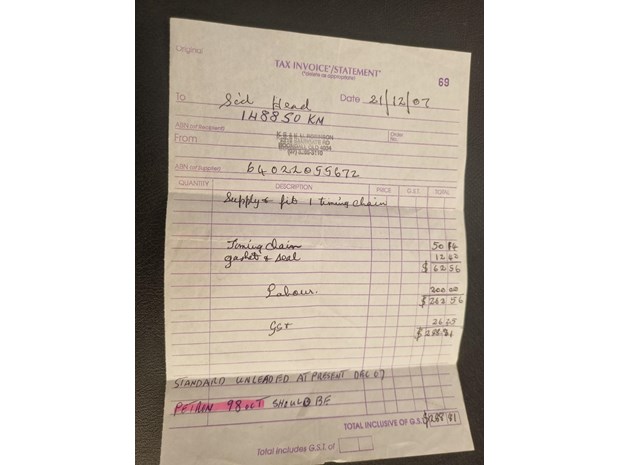 Original
TAX INVOICE*/STATEMENT*
(*delete as appropriate)
69
To Sid Head Date 21/12/07
148850 KM
ABN (of Recipient) Order No.
From
ABN (of Supplier) 64022055672
QUANTITY DESCRIPTION PRICE G.S.T. TOTAL
Supply & fit 1 timing chain
Timing chain 50 14
gasket & seal 12 42
$ 62 56
Labour. 200 00
$ 262 56
Gst 26 25
$ 288 81
STANDARD UNLEADED AT PRESENT DEC 07
98 OCT SHOULD BE
TOTAL INCLUSIVE OF G.S.T. $288 81
Total includes G.S.T. of